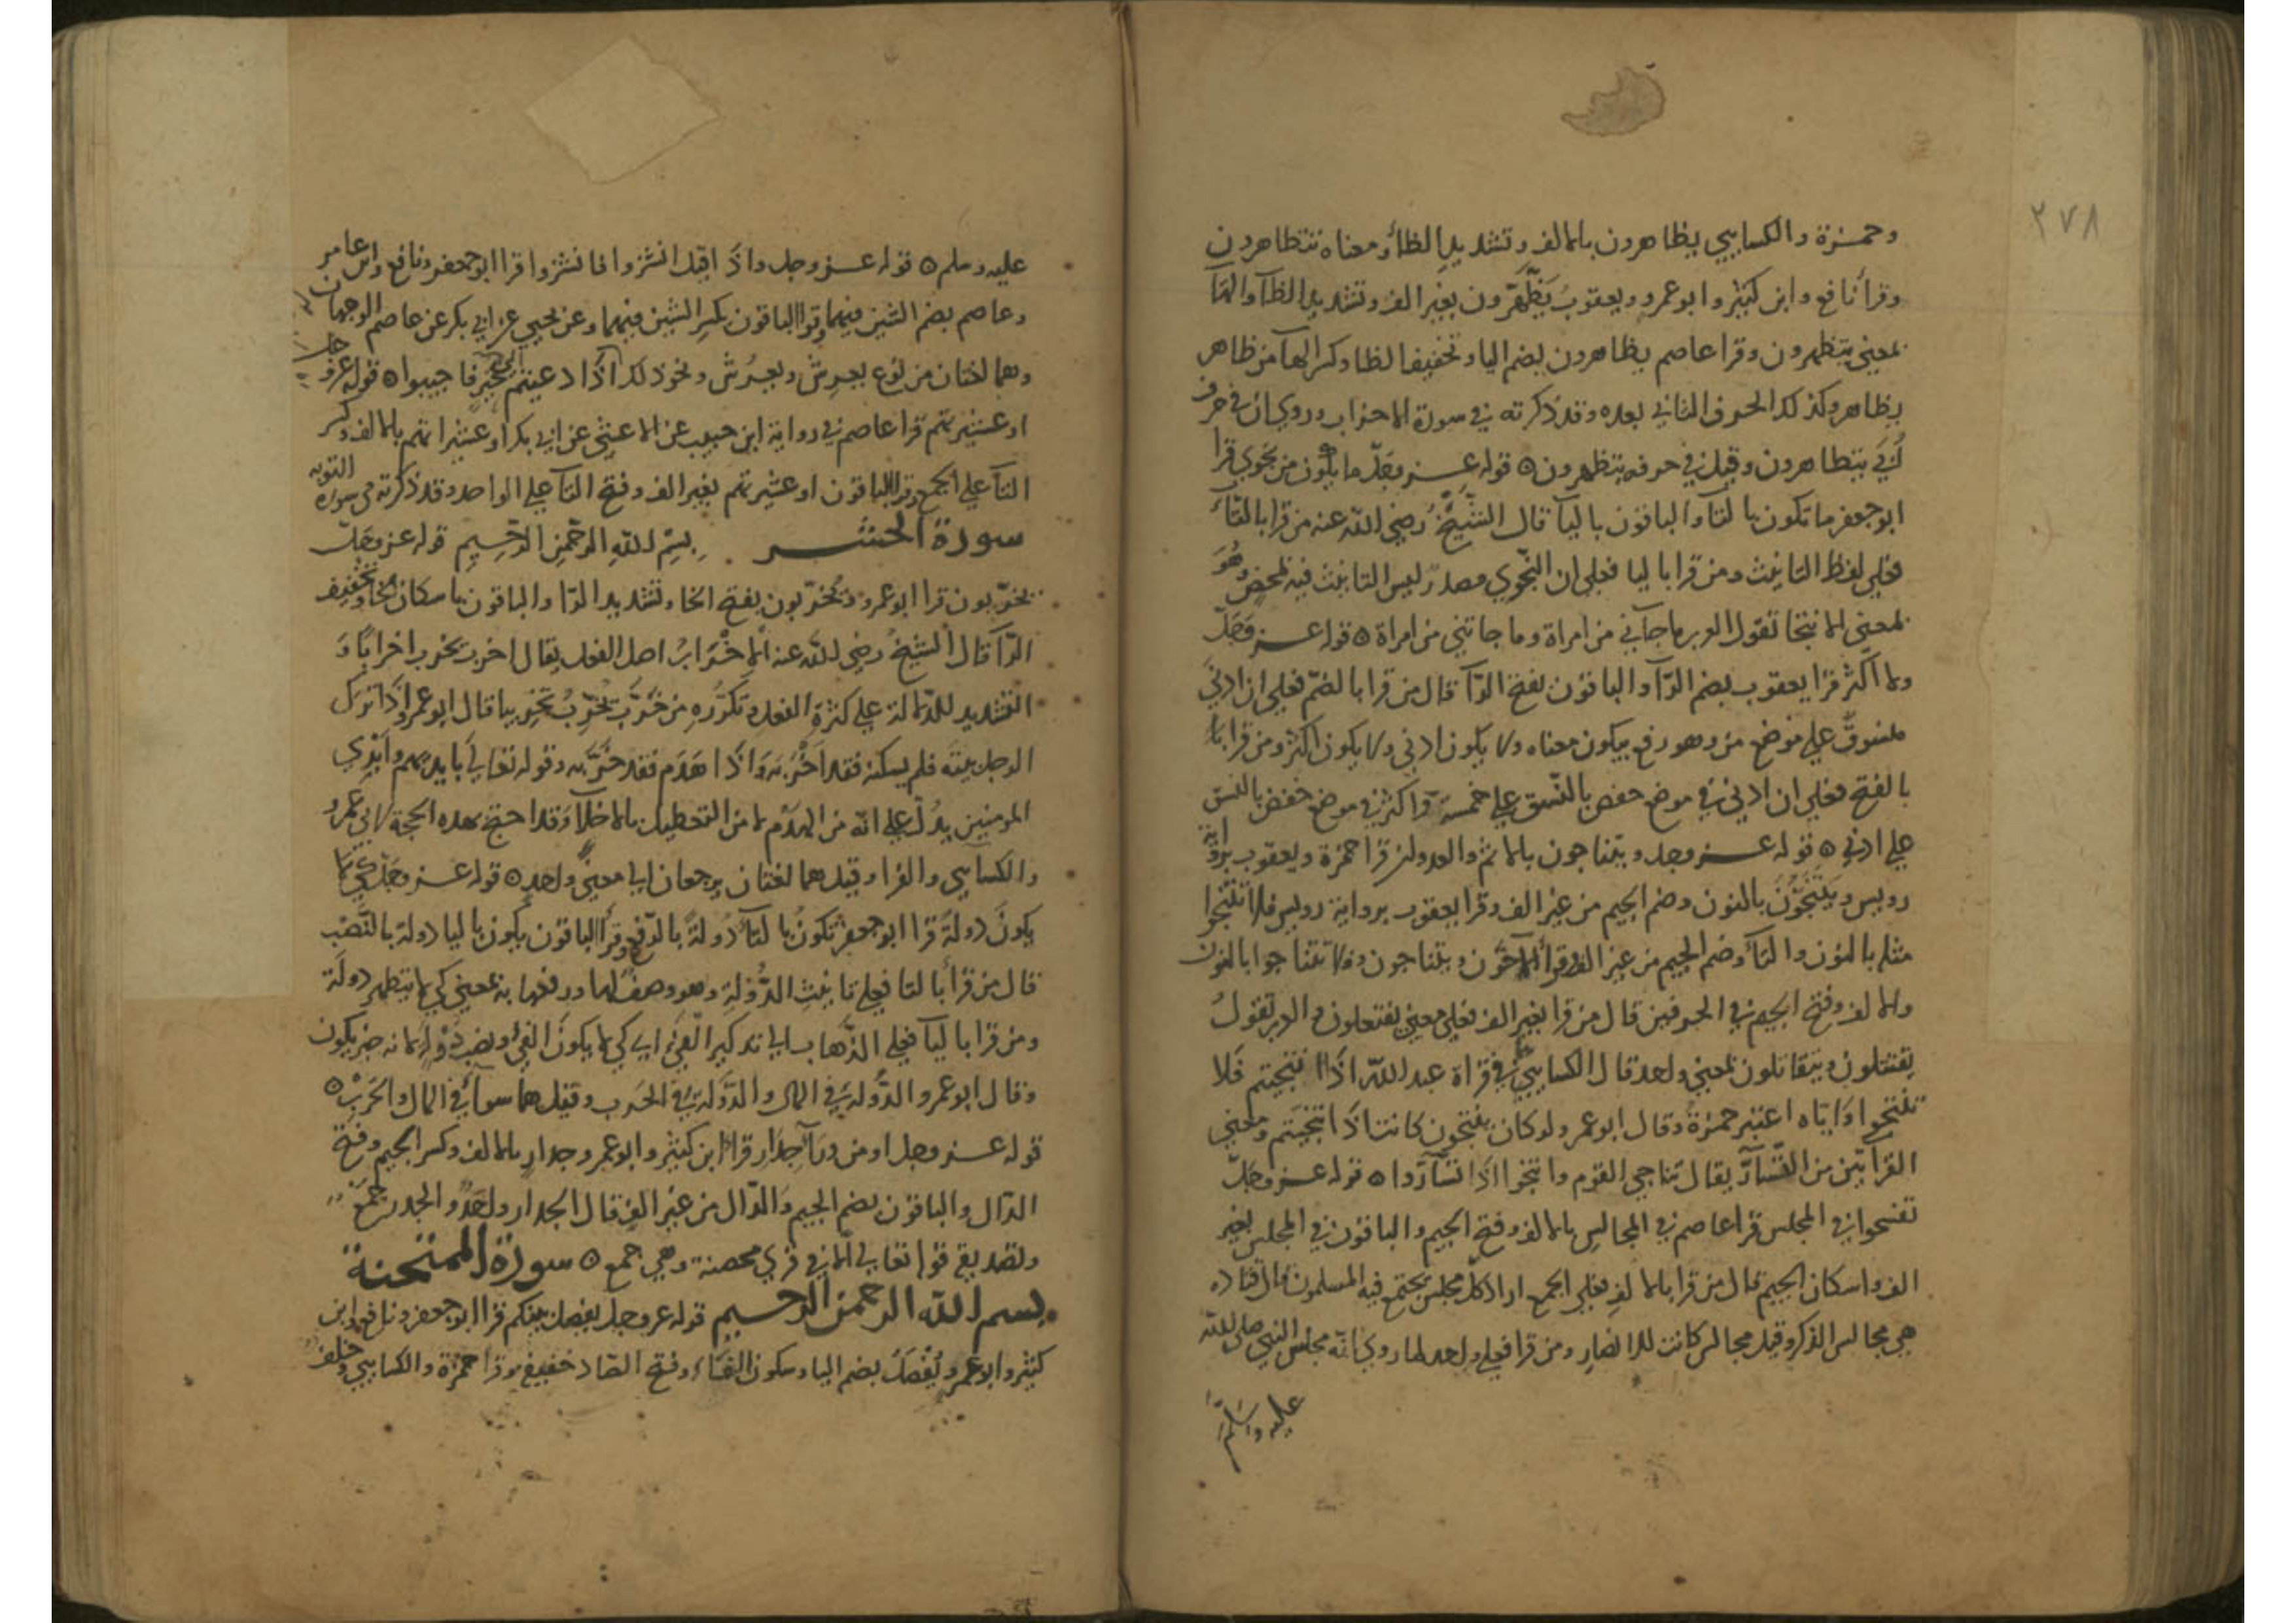 ٢٧٨
وحمزة والكسايي يظاهرون بالالف وتشديد الظا ومعناه تتظاهرون
وقرا نافع وابن كثير وابو عمرو ويعقوب يَظَّهَّرون بغير الف وتشديد الظآ والهآ
بمعنى يتظهرون وقرا عاصم يظاهرون بضم اليا وتخفيف الظا وكسر الهآ من ظاهر
يظاهر وكذلك الحرف الثاني بعده وقد ذكرته في سورة الاحزاب وروي ان في حرف
اُبَيّ يتظاهرون وقيل في حرفه يتظهرون ه قوله عز وجل ما يكون من نجوي قرا
ابو جعفر ما تكون بالتا والباقون باليآ قال الشيخ رضي الله عنه من قرا بالتآء
فعلي لفظ التانيث ومن قرا باليا فعلي ان النجوي مصدر ليس التانيث فيه بمحض وهو
بمعنى الانتجا تقول العرب ما جآني من امراة وما جاتني من امراة ه قوله عز وجل
ولا اكثر قرا يعقوب بضم الرآ والباقون بفتح الرآ قال من قرا بالضم فعلي ان ادني
منسوق علي موضع من وهو رفع يكون معناه ولا يكون ادني ولا يكون اكثر ومن قرا
بالفتح فعلي ان ادني في موضع خفض بالنسق علي خمسة واكثر في موضع خفض بالنسق
علي ادني ه قوله عز وجل ويتناجون بالاثم والعدوان قرا حمزة ويعقوب برواية
رويس ويَنْتَجُونَ بالنون وضم الجيم من غير الف وقرا يعقوب برواية رويس فلا تنتجوا
مثله بالنون والتا وضم الجيم من غير الف وقرا الآخرون ويتناجون وفلا تتناجوا بالنون
والالف وفتح الجيم في الحرفين قال من قرا بغير الف فعلي معني يفتعلون والعرب تقول
يقتتلون ويتقاتلون بمعني واحد قال الكسايي في قراة عبد الله اذا انتجيتم فلا
تنتجوا واياه اعتبر حمزة وقال ابو عمرو لو كان ينتجون كانت اذا انتجيتم ومعني
القراتين من التسآر يقال تناجي القوم وانتجوا اذا تسآروا ه قوله عز وجل
تفسحوا في المجلس قرا عاصم في المجالس بالالف وفتح الجيم والباقون في المجلس بغير
الف واسكان الجيم قال من قرا بالالف فعلي الجمع اراد كل مجلس يجتمع فيه المسلمون قال قتاده
هي مجالس الذكر وقيل مجالس كانت للانصار ومن قرا فعلي واحد لما روي انه مجلس النبي صلى الله
عليه وسلم
عليه وسلم ه قوله عز وجل واذا قيل انشزوا فانشزوا قرا ابو جعفر ونافع وابن عامر
وعاصم بضم الشين فيهما وقرا الباقون بكسر الشين فيهما وعن يحيي عن ابي بكر عن عاصم الوجهان
وهما لغتان من نوع يعرِش ويعرُش ونحو ذلك اذا دعيتم الي خير فاجيبوا ه قوله عز وجل
او عشيرتهم قرا عاصم في رواية ابن حبيب عن الاعشي عن ابي بكر او عشيراتهم بالالف وكسر
التآ علي الجمع وقرا الباقون او عشيرتهم بغير الف وفتح التآ علي الواحد وقد ذكرته في سورة التوبه
سورة الحشر بسم الله الرحمن الرحيم قوله عز وجل
يخرّبون قرا ابو عمرو يُخرّبون بفتح الخا وتشديد الرّا والباقون باسكان الخا وتخفيف
الرّآ قال الشيخ رضي الله عنه الاِخْرَابُ اصل الفعل يقال اخرب يخرب اخرابًا و
التشديد للدلالة علي كثرة الفعل وتكرّره من خرّب يُخرّبُ تخريبا قال ابو عمرو اذا ترك
الرجل بيته فلم يسكنه فقد اَخْرَبَه وَاذا هَدَم فقد خَرَّبه وقوله تعالي بايديهم وايدي
المومنين يدُلّ علي انه من الهدم لا من التعطيل بالاخلآ وقد احتج بهذه الحجة لابي عمرو
والكسايي والفرا وقيل هما لغتان يرجعان الي معنيً واحد ه قوله عز وجل كي لا
يكون دولةً قرا ابو جعفر تكونُ بالتآء دولةٌ بالرّفع وقرا الباقون يكون باليا دولة بالنَّصْب
قال من قرا بالتا فعلي تانيث الدُّوْلةِ وهو وصف لها ورفعها به بمعني كي لا يتظهر دولة
ومن قرا باليآ فعلي الذَّهاب الي تذكير الفيء اي كي لا يكونَ الفيُ ونصب دُوْلةً لانه خبر يكون
وقال ابو عمرو الدُّولة في المال والدَّولة في الحَرب وقيل هما سوآء في المال والحَرْب ه
قوله عز وجل او من ورآ جدار قرا ابن كثير وابو عمرو جدارٍ بالالف وكسر الجيم وفتح
الدّال والباقون بضم الجيم والدّال من غير الف قال الجدار واحدٌ والجدر جمعٌ
وتصديقه قوله تعالي الا في قري محصنة وهي جمع ه سورة الممتحنة
بسم الله الرحمن الرحيم قوله عز وجل يفصل بينكم قرا ابو جعفر ونافع وابن
كثير وابو عمرو يُفْصَلُ بضم اليا وسكون الفاء وفتح الصاد خفيف وقرا حمزة والكسايي وخلف